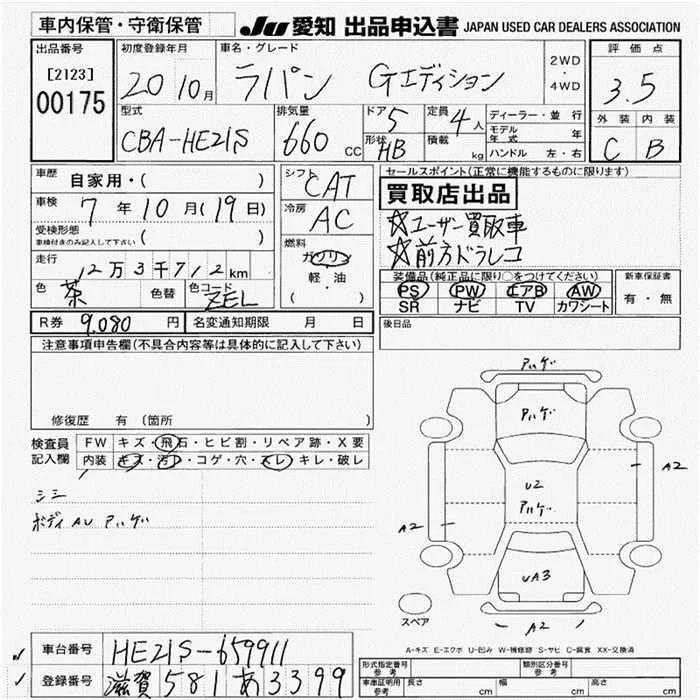 車内保管・守衛保管
JU 愛知 出品申込書 JAPAN USED CAR DEALERS ASSOCIATION
出品番号
[2123]
00175
初度登録年月
20 10月
車名・グレード
ラパン Gエディション
2WD
・
4WD
評価点
3.5
外装 内装
C B
型式
CBA-HE21S
排気量
660 CC
ドア 5
形状 HB
定員 4人
積載 kg
ディーラー・並行
モデル年式 年
ハンドル 左・右
車歴 自家用・( )
車検 7年10月(19日)
受検形態
車検付きのみ記入して下さい ( )
走行 12万3千712km
色 茶 色替 色コード ZEL
シフト CAT
冷房 AC
燃料
ガソリン
軽・油
( )
セールスポイント(正常に機能するものに限ります)
買取店出品
☆ユーザー買取車
☆前方ドラレコ
装備品(純正品に限り○をつけてください)
PS PW エアB AW
SR ナビ TV カワシート
新車保証書
有・無
R券 9,080 円 名変通知期限 月 日
後日品
注意事項申告欄(不具合内容等は具体的に記入して下さい)
修復歴 有 (箇所 )
検査員記入欄
FW キズ・飛石・ヒビ割・リペア跡・X要
内装 キズ・汚れ・コゲ・穴・スレ・キレ・破レ
シミ
ボディ AU アハゲ
アハゲ
アハゲ
A2
U2
アハゲ
A2
UA3
スペア
A2
A-キズ E-エクボ U-凹み W-補修跡 S-サビ C-腐食 XX-交換済
車台番号 HE21S-659911
登録番号 滋賀 581 あ 3399
形式指定番号
参考
類別区分番号
参考
車庫証明用
参考
長さ cm 幅 cm 高さ cm